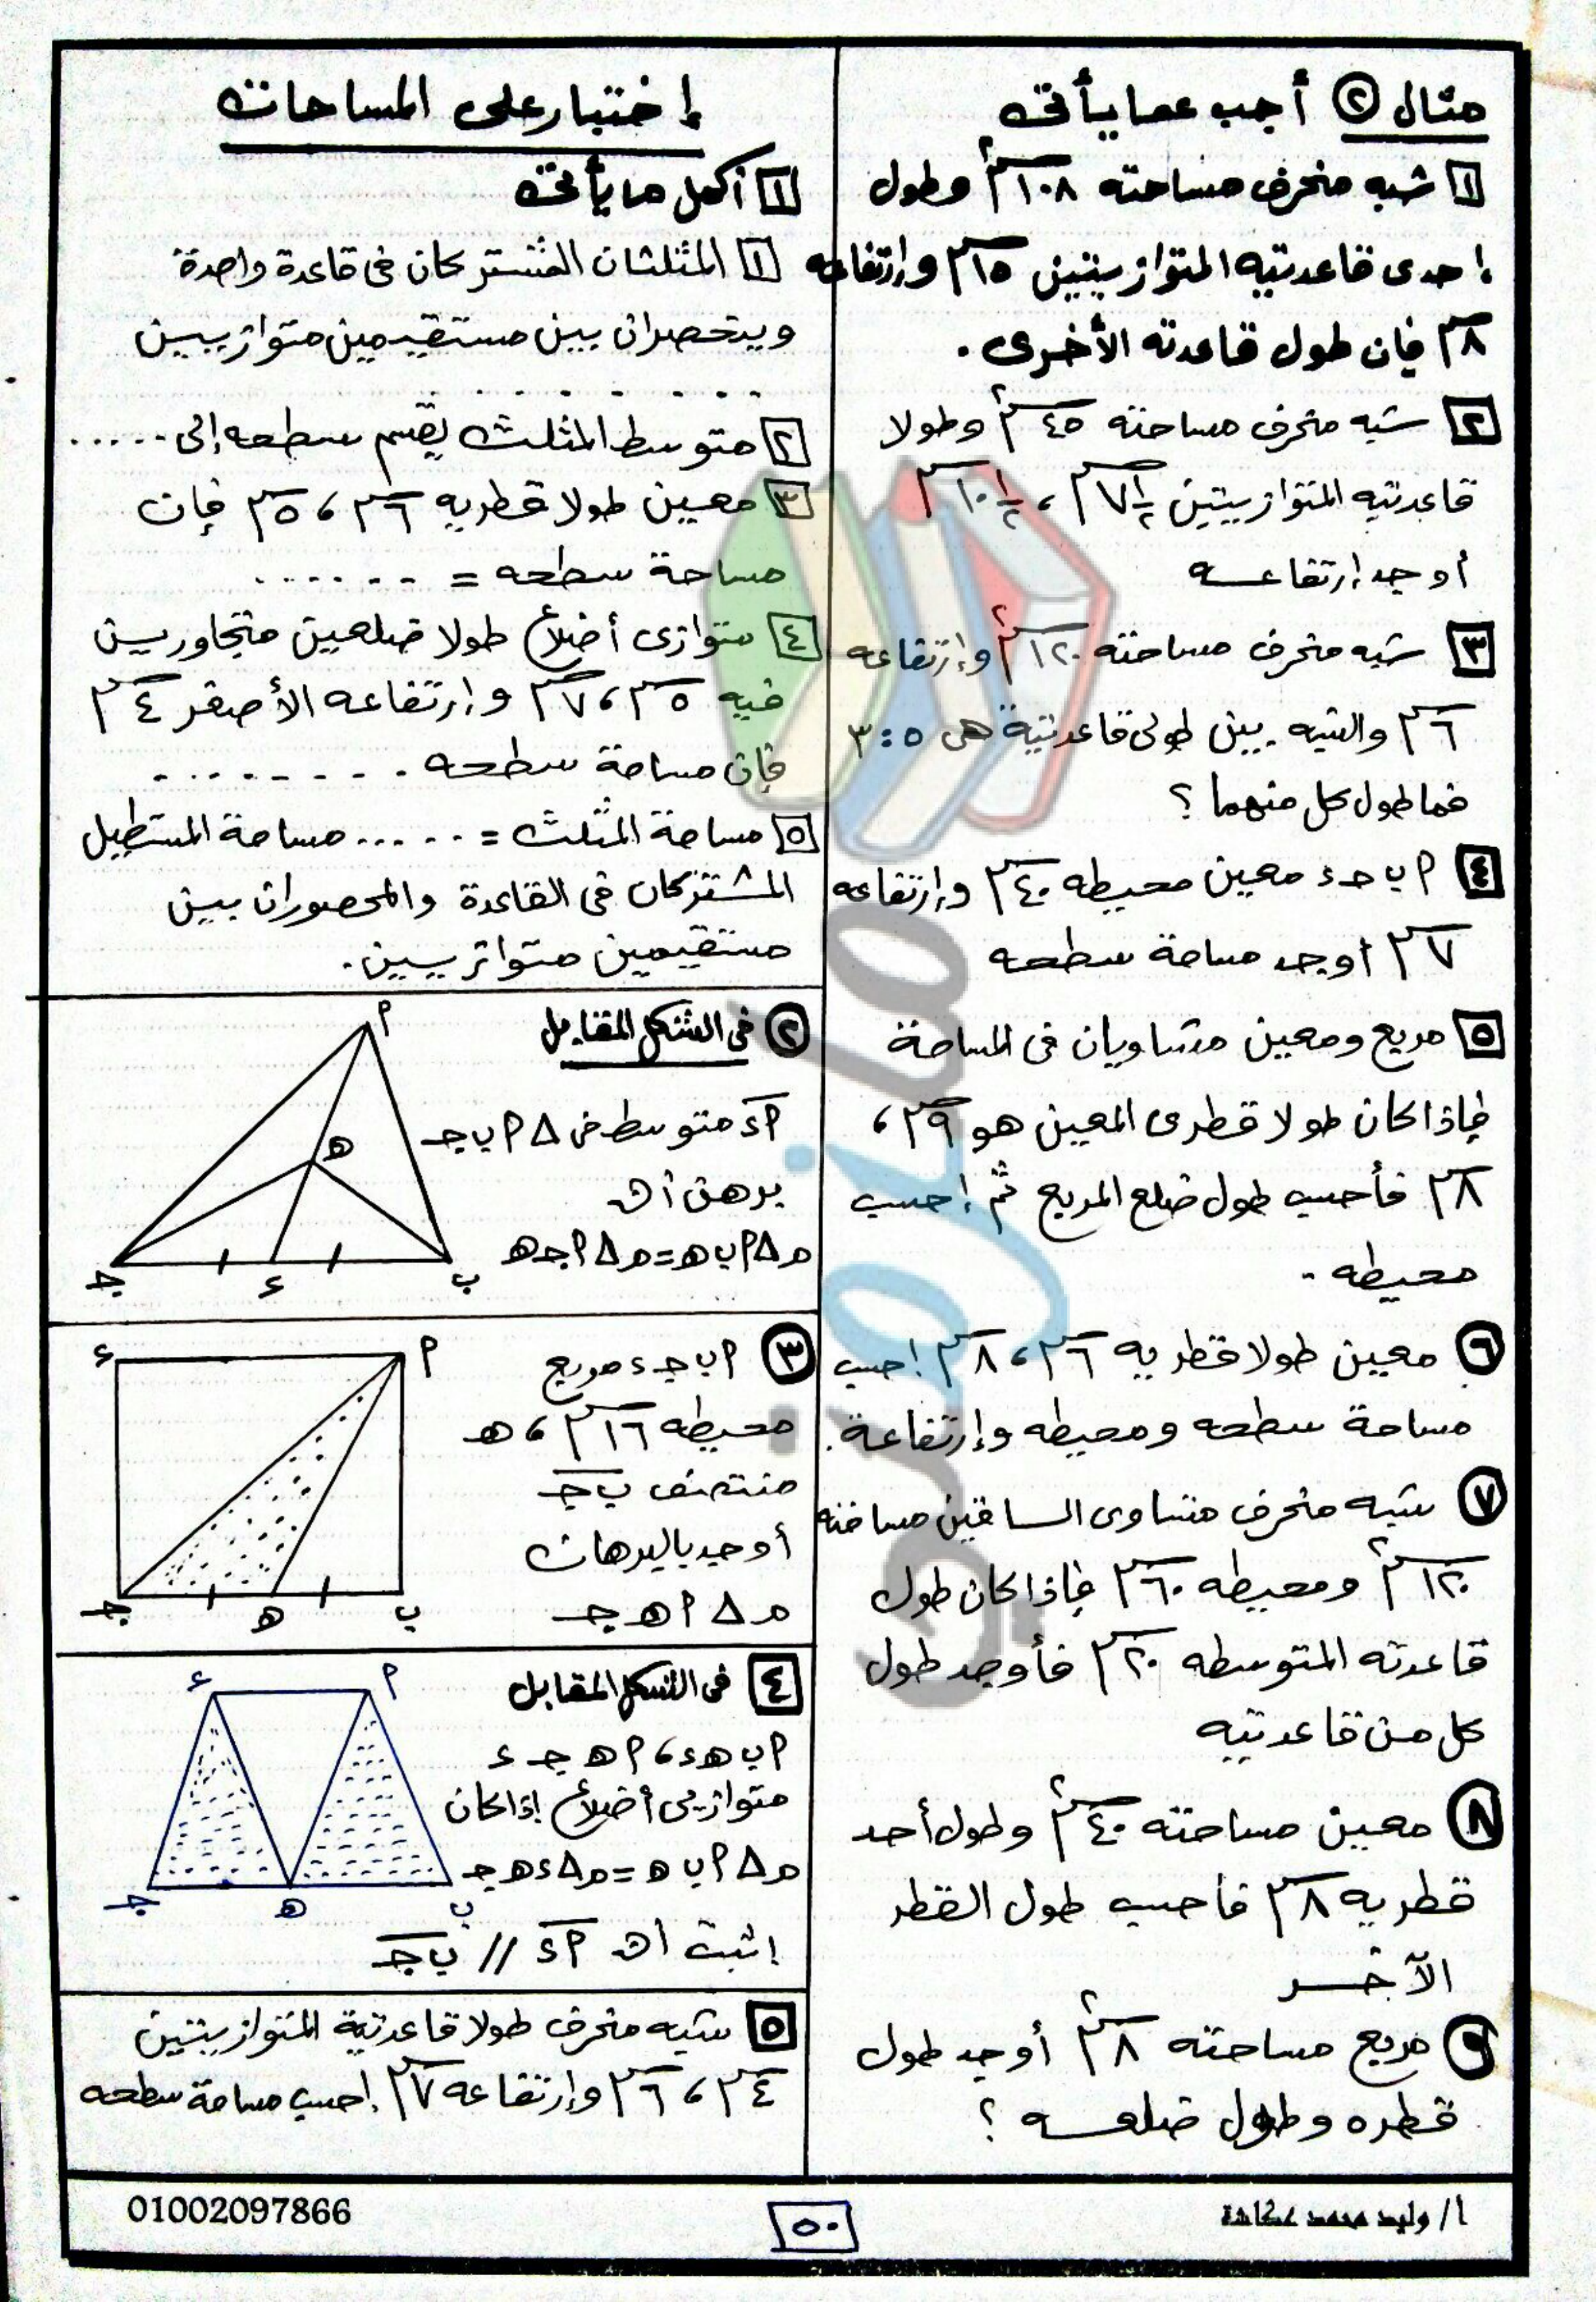 مثال ② أجب عما يأتى
١ شبه منحرف مساحته ١٠٨ سم٢ وطول
إحدى قاعدتيه المتوازيتين ١٥سم وارتفاعه
٨سم فإن طول قاعدته الأخرى .
٢ شبه منحرف مساحته ٤٥ سم٢ وطولا
قاعدتيه المتوازيتين ٧½سم ، ١٠½سم
أوجد إرتفاعه
٣ شبه منحرف مساحته ١٢٠سم٢ وإرتفاعه
٦سم والنسبة بين طولى قاعدتية هى ٥ : ٣
فما طول كل منهما ؟
٤ ٢ ب حـ ء معين محيطه ٤٠سم وإرتفاعه
٧سم أوجد مساحة سطحه
٥ مربع ومعين متساويان فى المساحة
فإذا كان طولا قطرى المعين هو ٩سم ،
٨سم فأحسب طول ضلع المربع ثم إحسب
محيطه .
٦ معين طولا قطريه ٦سم ، ٨سم إحسب
مساحة سطحه ومحيطه وإرتفاعة .
٧ شبه منحرف متساوى الساقين مساحته
١٢٠سم٢ ومحيطه ٦٠سم فإذا كان طول
قاعدته المتوسطه ٢٠سم فأوجد طول
كل من قاعدتيه
٨ معين مساحته ٤٠سم٢ وطول أحد
قطريه ٨سم فاحسب طول القطر
الآخر
٩ مربع مساحته ٨سم٢ أوجد طول
قطره وطول ضلعه ؟
إختبار على المساحات
١ أكمل ما يأتى
١ المثلثان المشتركان فى قاعدة واحدة
وينحصران بين مستقيمين متوازيين
. . . . . . . . .
٢ متوسط المثلث يقسم سطحه إلى . . . . .
٣ معين طولا قطريه ٦سم ، ٥سم فإن
مساحة سطحه = . . . . . .
٤ متوازى أضلاع طولا ضلعين متجاورين
فيه ٥سم ، ٧سم وإرتفاعه الأصغر ٤سم
فإن مساحة سطحه . . . . . . . . .
٥ مساحة المثلث = . . . . . مساحة المستطيل
المشتركان فى القاعدة والمحصوران بين
مستقيمين متوازيين .
② فى الشكل المقابل
أء متوسط فى Δ أ ب جـ
برهن أن
م Δ أ ب هـ = م Δ أ جـ هـ
أ
هـ
جـ ء ب
③ أ ب جـ ء مربع
محيطه ١٦سم ، هـ
منتصف ب جـ
أوجد بالبرهان
م Δ أ هـ جـ
ء أ
جـ هـ ب
٤ فى الشكل المقابل
أ ب هـ ء ، أ هـ جـ ء
متوازيى أضلاع إذا كان
م Δ أ ب هـ = م Δ ء هـ جـ
إثبت أن أء // ب جـ
ء أ
جـ هـ ب
٥ شبه منحرف طولا قاعدتية المتوازيتين
٤سم ، ٦سم وإرتفاعه ٧سم إحسب مساحة سطحه
أ/ وليد محمد عكاشة
٥٠
01002097866